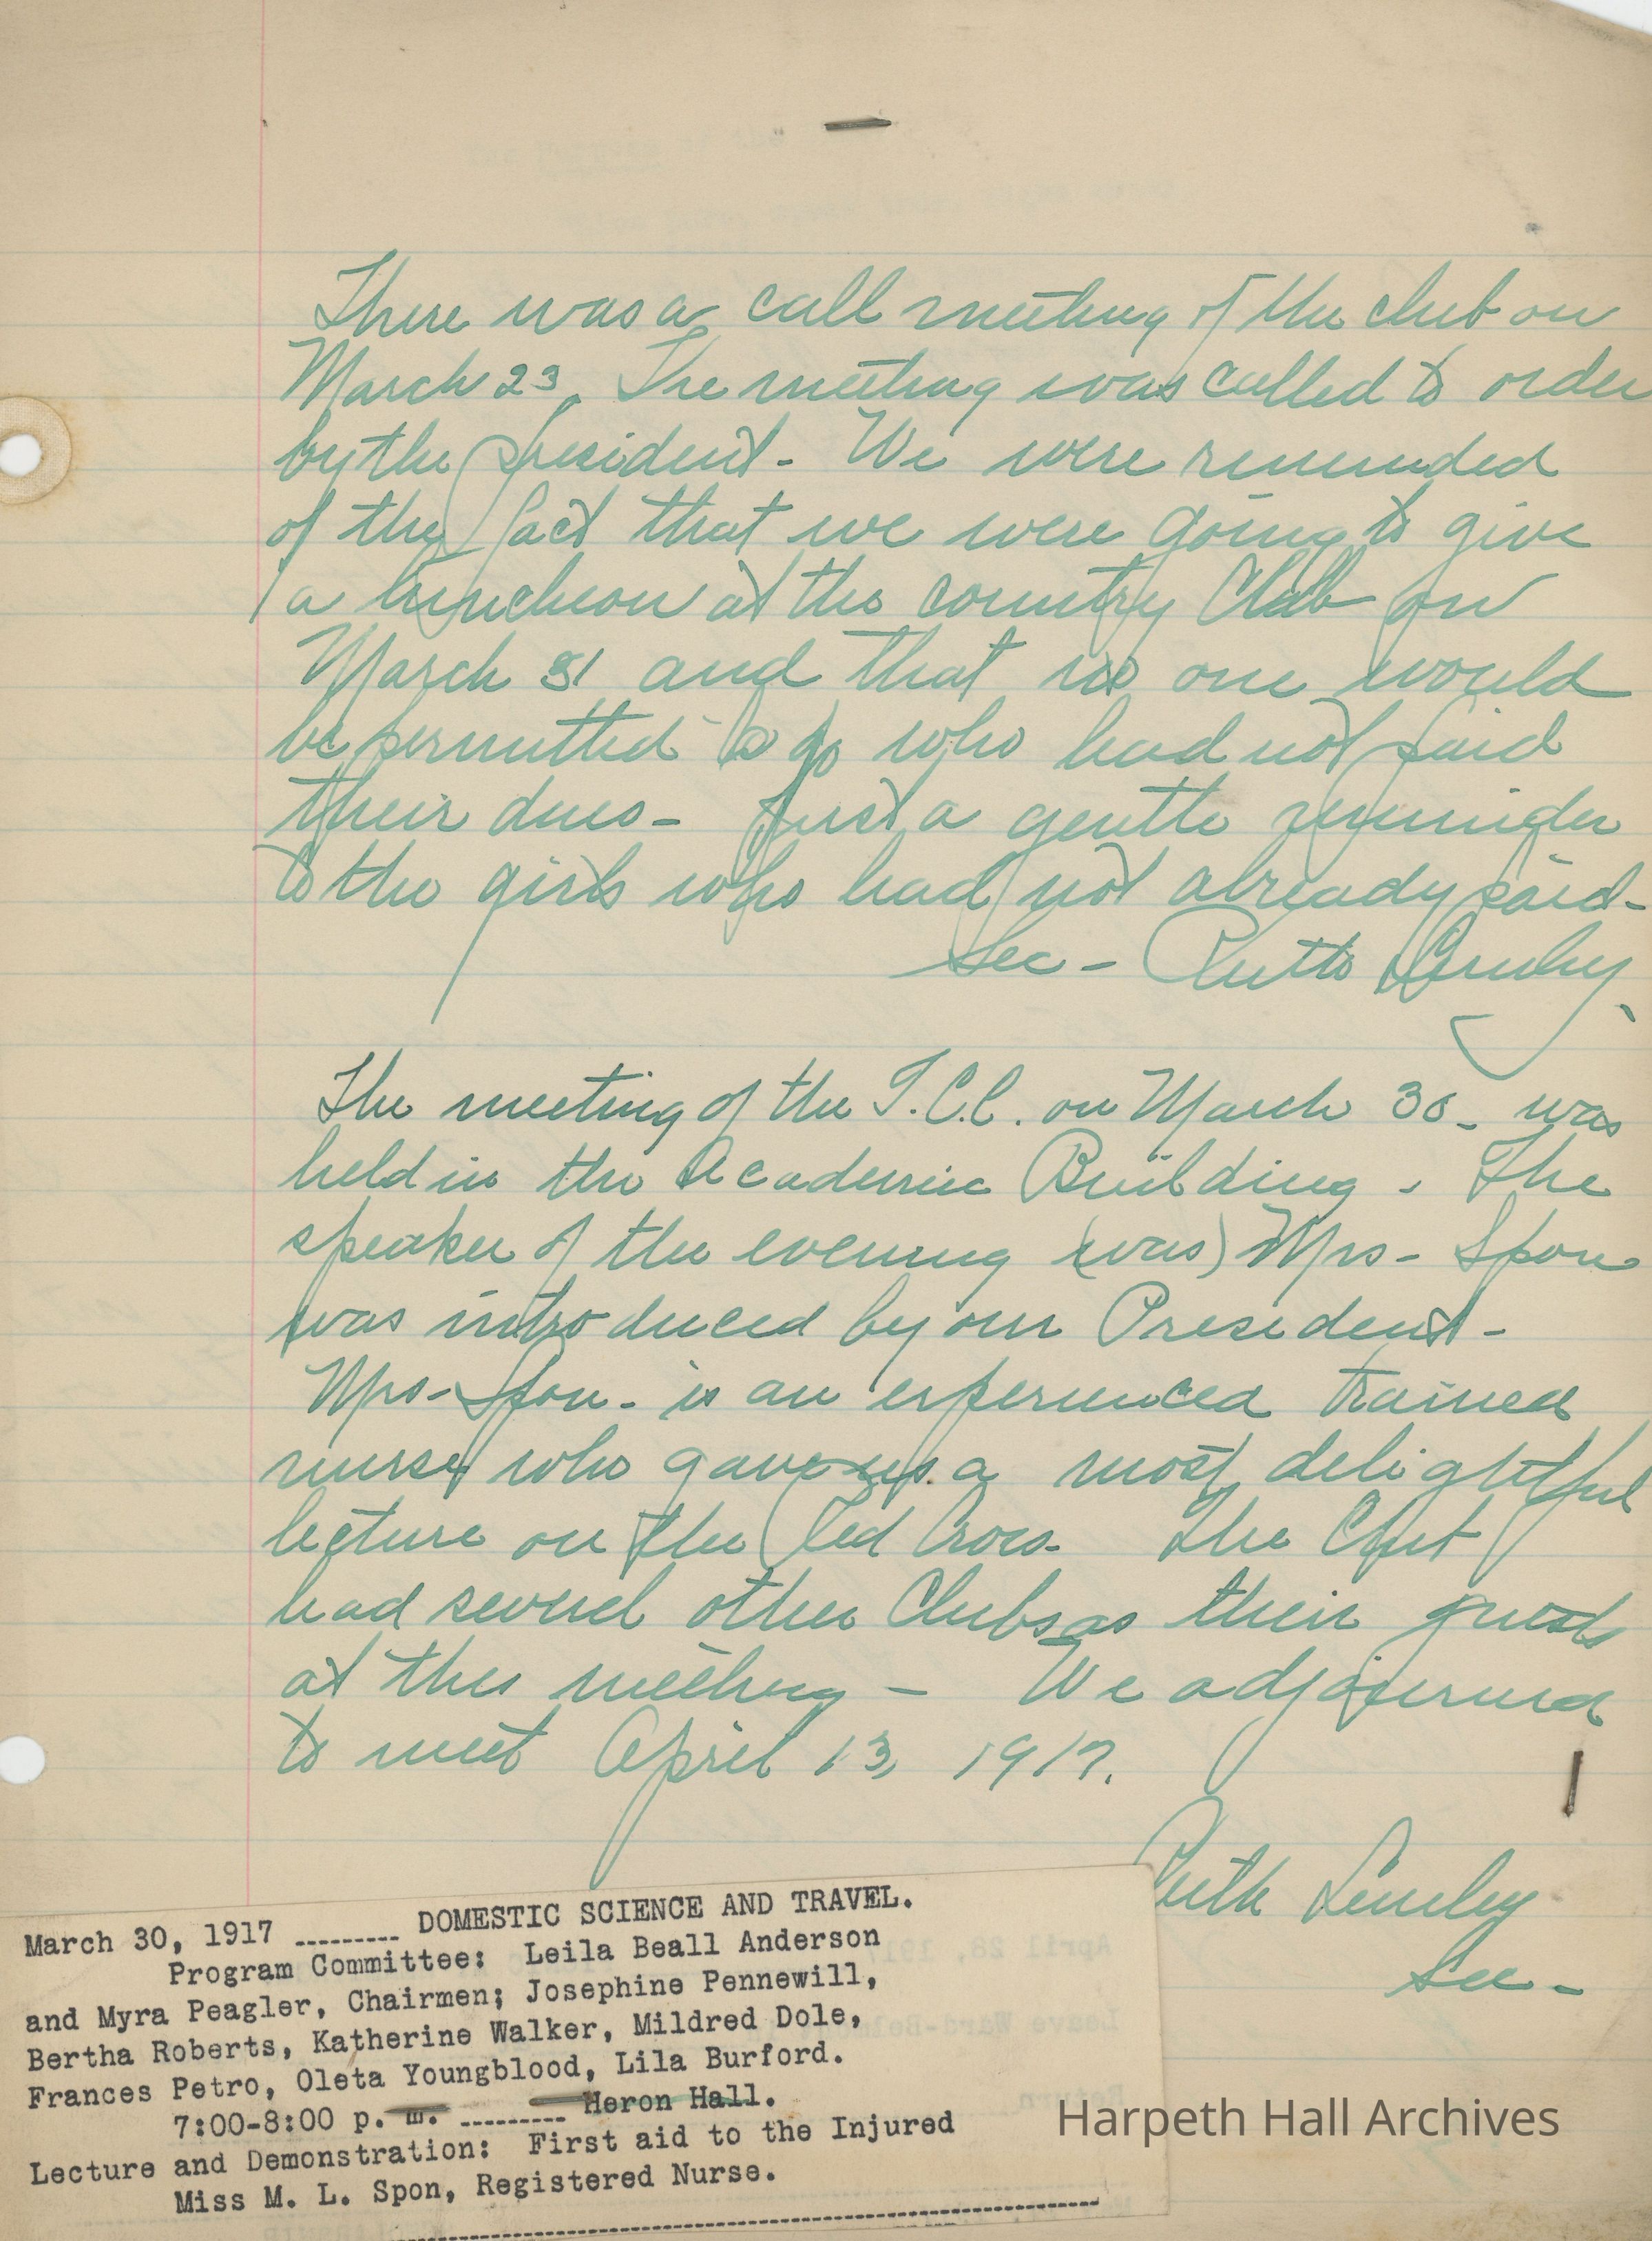 There was a call meeting of the club on
March 23. The meeting was called to order
by the president - We were reminded
of the fact that we were going to give
a luncheon at the country Club on
March 31 and that no one would
be permitted to go who had not paid
their dues - Just a gentle reminder
to the girls who had not already paid -
Sec - Ruth
The meeting of the T.C.C. on March 30 - was
held in the Academic Building. The
speaker of the evening (was) Mrs - Spon
was introduced by our President -
Mrs - Spon - is an experienced trained
nurse, who gave us a most delightful
lecture on the Red Cross - The Club
had several other Clubs as their guests
at this meeting - We adjourned
to meet April 13, 1917.
Ruth
Sec -
March 30, 1917 --------- DOMESTIC SCIENCE AND TRAVEL.
Program Committee: Leila Beall Anderson
and Myra Peagler, Chairmen; Josephine Pennewill,
Bertha Roberts, Katherine Walker, Mildred Dole,
Frances Petro, Oleta Youngblood, Lila Burford.
7:00-8:00 p. m. --------- Heron Hall.
Lecture and Demonstration: First aid to the Injured
Miss M. L. Spon, Registered Nurse.
Harpeth Hall Archives